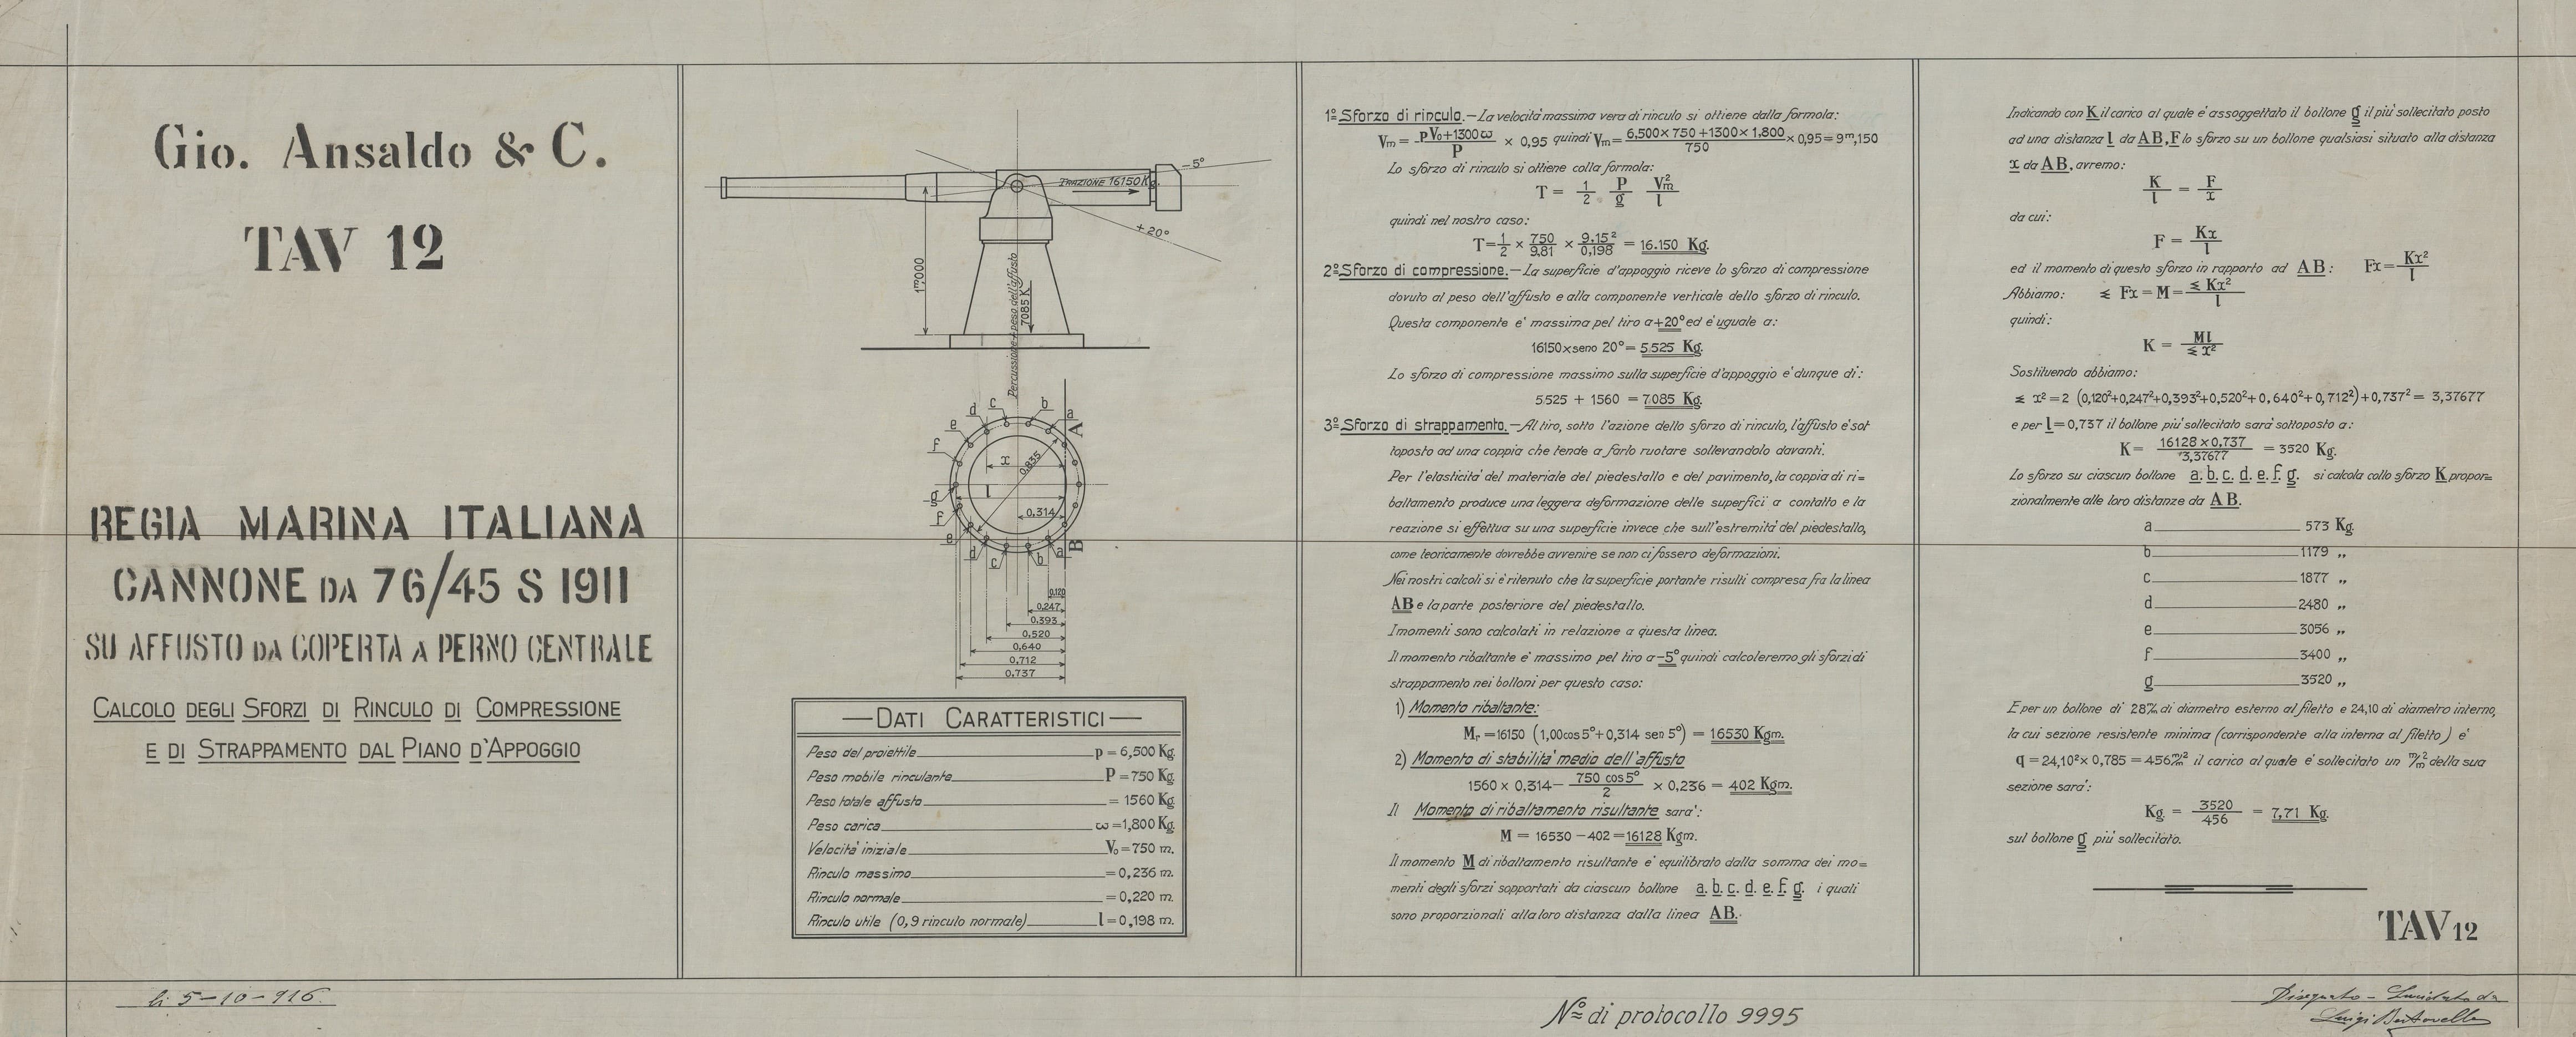 Gio. Ansaldo & C.
TAV 12
REGIA MARINA ITALIANA
CANNONE DA 76/45 S 1911
SU AFFUSTO DA COPERTA A PERNO CENTRALE
CALCOLO DEGLI SFORZI DI RINCULO DI COMPRESSIONE
E DI STRAPPAMENTO DAL PIANO D'APPOGGIO
li 5-10-916.
-5°
TRAZIONE 16150 Kg.
+20°
1m,000
Percussione + peso dell'affusto
7085 K
d c b a
A
e
f
x
0,835
g
l
f
0,314
e
d c b a
B
0,120
0,247
0,393
0,520
0,640
0,712
0,737
DATI CARATTERISTICI
Peso del proiettile p = 6,500 Kg.
Peso mobile rinculante P = 750 Kg.
Peso totale affusto = 1560 Kg.
Peso carica ω = 1,800 Kg.
Velocità iniziale V₀ = 750 m.
Rinculo massimo = 0,236 m.
Rinculo normale = 0,220 m.
Rinculo utile (0,9 rinculo normale) l = 0,198 m.
1º Sforzo di rinculo.— La velocità massima vera di rinculo si ottiene dalla formula:
Vm = (p V₀ + 1300 ω) / P × 0,95 quindi Vm = (6,500 × 750 + 1300 × 1,800) / 750 × 0,95 = 9m,150
Lo sforzo di rinculo si ottiene colla formula:
T = 1/2 P/g Vm²/l
quindi nel nostro caso:
T = 1/2 × 750/9,81 × 9.15²/0,198 = 16.150 Kg.
2º Sforzo di compressione.— La superficie d'appoggio riceve lo sforzo di compressione
dovuto al peso dell'affusto e alla componente verticale dello sforzo di rinculo.
Questa componente e' massima pel tiro a +20° ed e' uguale a:
16150 x seno 20° = 5.525 Kg.
Lo sforzo di compressione massimo sulla superficie d'appoggio e' dunque di:
5.525 + 1560 = 7.085 Kg.
3º Sforzo di strappamento.— Al tiro, sotto l'azione dello sforzo di rinculo, l'affusto e' sot
toposto ad una coppia che tende a farlo ruotare sollevandolo davanti.
Per l'elasticità del materiale del piedestallo e del pavimento, la coppia di ri=
baltamento produce una leggera deformazione delle superfici a contatto e la
reazione si effettua su una superficie invece che sull'estremità del piedestallo,
come teoricamente dovrebbe avvenire se non ci fossero deformazioni.
Nei nostri calcoli si e' ritenuto che la superficie portante risulti compresa fra la linea
AB e la parte posteriore del piedestallo.
I momenti sono calcolati in relazione a questa linea.
Il momento ribaltante e' massimo pel tiro a -5° quindi calcoleremo gli sforzi di
strappamento nei bolloni per questo caso:
1) Momento ribaltante:
Mr = 16150 (1,00 cos 5° + 0,314 sen 5°) = 16530 Kgm.
2) Momento di stabilità medio dell'affusto
1560 × 0,314 − (750 cos 5°)/2 × 0,236 = 402 Kgm.
Il Momento di ribaltamento risultante sara':
M = 16530 − 402 = 16128 Kgm.
Il momento M di ribaltamento risultante e' equilibrato dalla somma dei mo=
menti degli sforzi sopportati da ciascun bollone a. b. c. d. e. f. g. i quali
sono proporzionali alla loro distanza dalla linea AB.
Nº di protocollo 9995
Indicando con K il carico al quale e' assoggettato il bollone g il piu' sollecitato posto
ad una distanza l da AB, F lo sforzo su un bollone qualsiasi situato alla distanza
x da AB, avremo:
K/l = F/x
da cui:
F = Kx/l
ed il momento di questo sforzo in rapporto ad AB: Fx = Kx²/l
Abbiamo: ≤ Fx = M = ≤ Kx²/l
quindi:
K = Ml / ≤ x²
Sostituendo abbiamo:
≤ x² = 2 (0,120² + 0,247² + 0,393² + 0,520² + 0,640² + 0,712²) + 0,737² = 3,37677
e per l = 0,737 il bollone piu' sollecitato sara' sottoposto a:
K = (16128 × 0,737) / 3,37677 = 3520 Kg.
Lo sforzo su ciascun bollone a. b. c. d. e. f. g. si calcola collo sforzo K propor=
zionalmente alle loro distanze da AB.
a 573 Kg.
b 1179 „
c 1877 „
d 2480 „
e 3056 „
f 3400 „
g 3520 „
E per un bollone di 28 m/m di diametro esterno al filetto e 24,10 di diametro interno,
la cui sezione resistente minima (corrispondente alla interna al filetto) e'
q = 24,10² × 0,785 = 456 m/m² il carico al quale e' sollecitato un m/m² della sua
sezione sara':
Kg. = 3520/456 = 7,71 Kg.
sul bollone g piu' sollecitato.
TAV 12
Disegnato - Lucidato da
Luigi